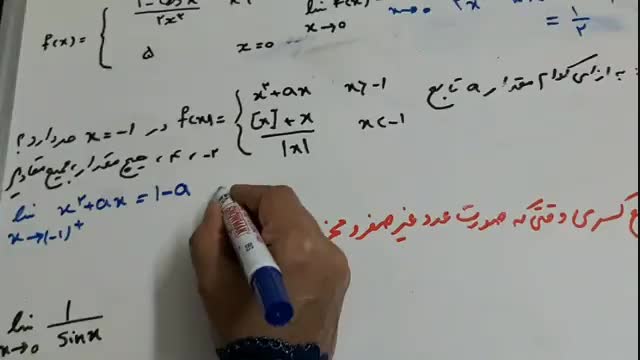 f(x) = { 1 - cos x / ۲x² 
۵ x = ۰
lim f(x)
x → ۰
= ۱/۲
به ازای کدام مقدار a تابع f(x) = { x² + ax x > -۱
[x] + x / |x| x < -۱
در x = -۱ حد دارد؟
-۲ ، ۴ ، هیچ مقدار ، جمیع مقادیر
lim x² + ax = ۱ - a
x → (-۱)⁺
کسری وقتی که صورت عدد غیر صفر و
lim 1 / sin x
x → ۰